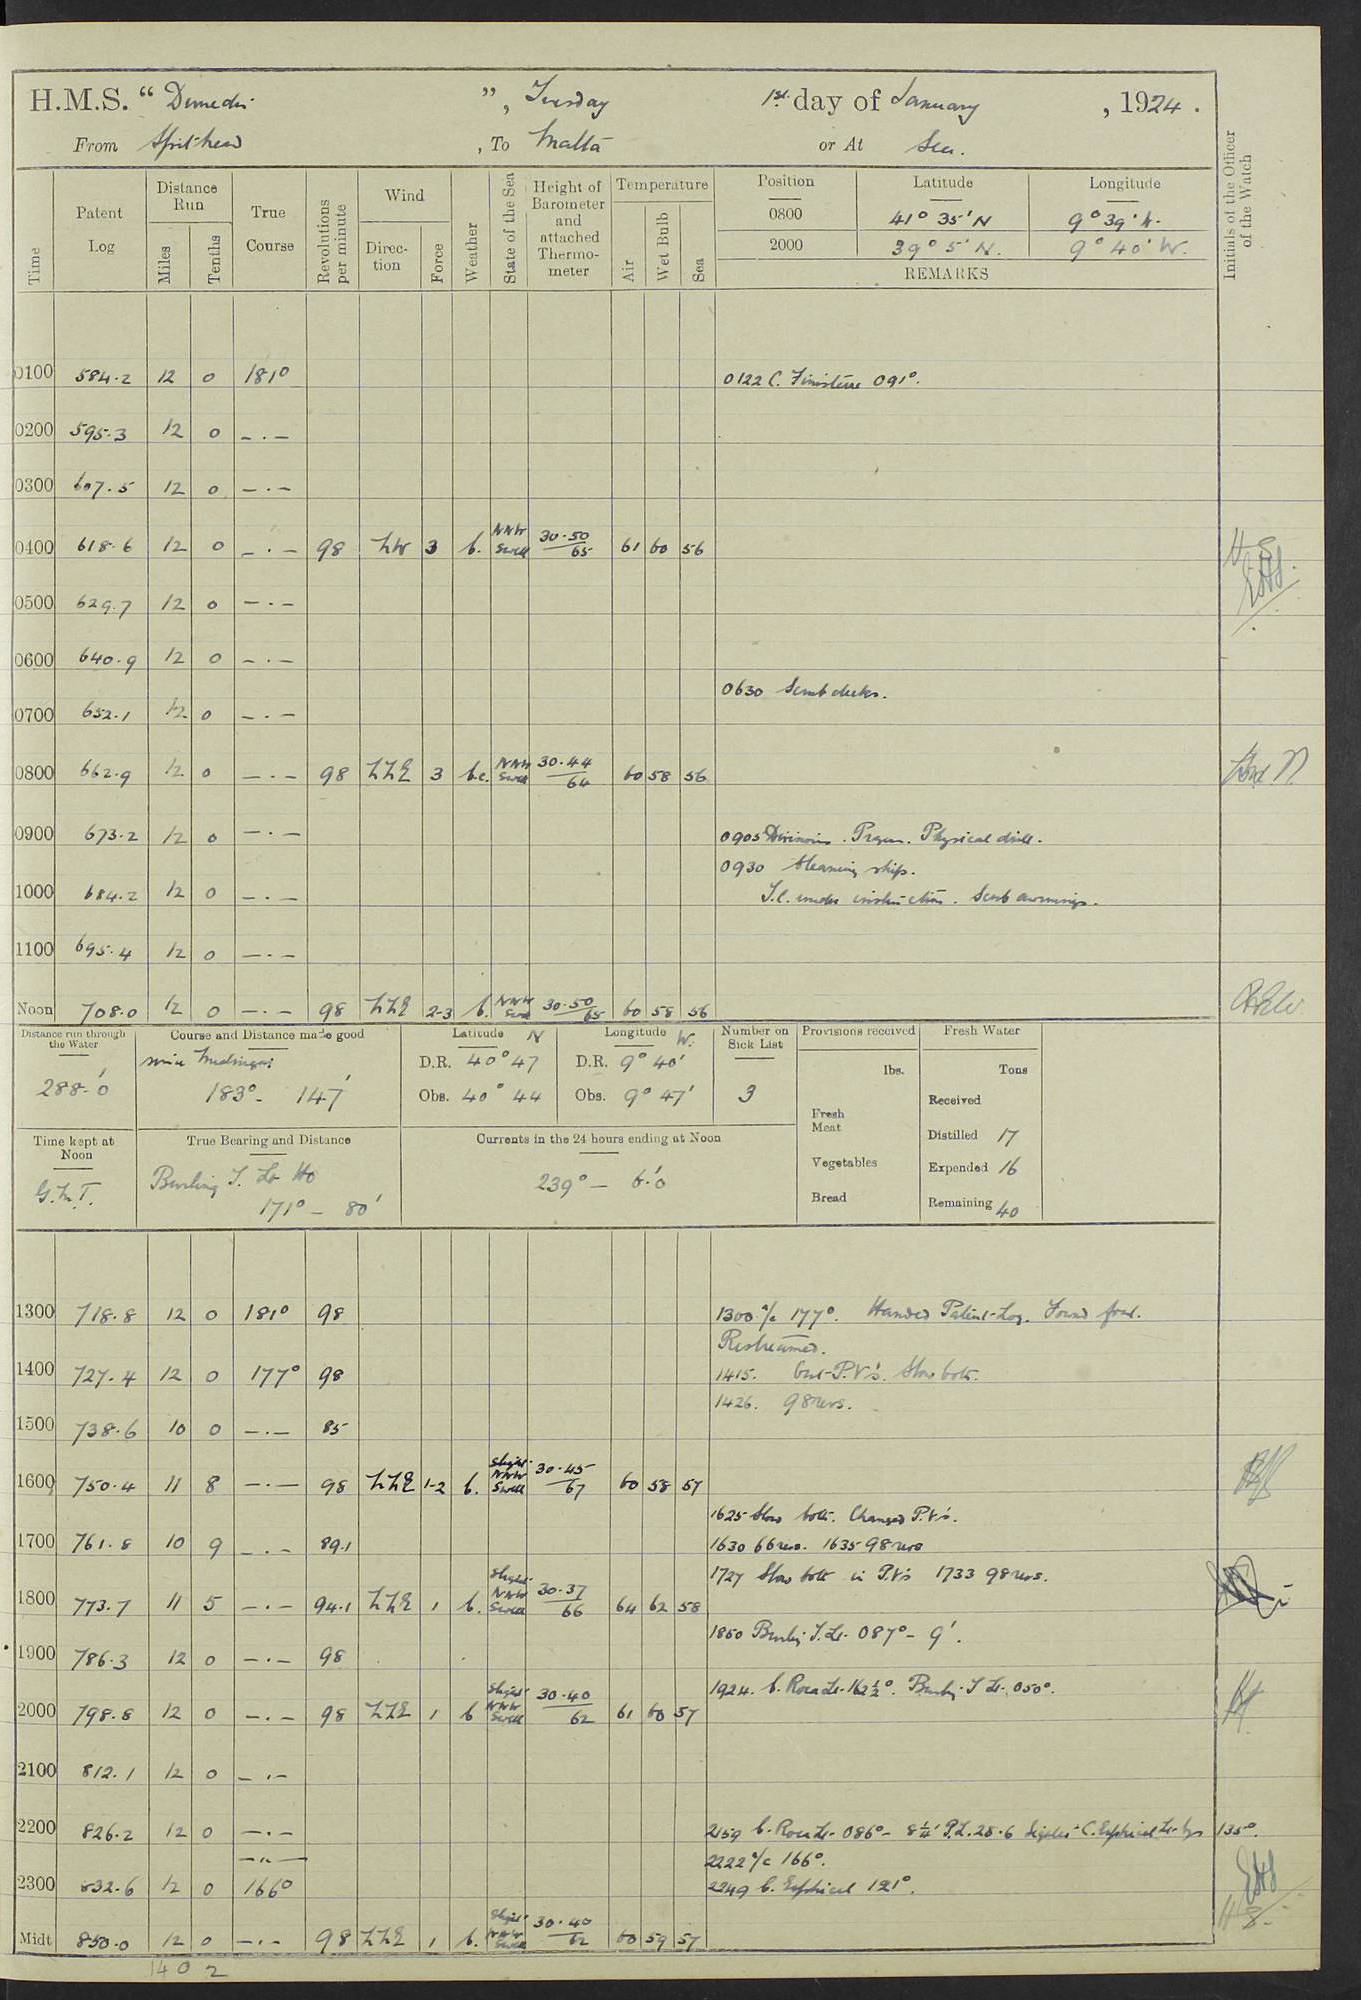 H.M.S. " ", Tuesday 1st day of January, 1924.
From Spithead, To Malta or At Sea.
Time Patent Log Distance Run Miles Tenths True Course Revolutions per minute Wind Direction Force Weather State of the Sea Height of Barometer and attached Thermometer Temperature Air Wet Bulb Sea Position Latitude Longitude Initials of the Officer of the Watch
0800 41° 35' N 9° 39' W.
2000 39° 5' N. 9° 40' W.
REMARKS
0100 584.2 12 0 181° 0122 C. Finisterre 091°.
0200 595.3 12 0 — . —
0300 607.5 12 0 — . —
0400 618.6 12 0 — . — 98 3 b. NNW Swell 30.50 65 61 60 56
0500 629.7 12 0 — . —
0600 640.9 12 0 — . —
0630 Scrub decks.
0700 652.1 12 0 — . —
0800 662.9 12 0 — . — 98 3 b.c. NNW Swell 30.44 64 60 58 56
0900 673.2 12 0 — . — 0905 Divisions. Prayers. Physical drill.
0930 Cleaning ship.
1000 684.2 12 0 — . — under instruction. Scrub awnings.
1100 695.4 12 0 — . —
Noon 708.0 12 0 — . — 98 2-3 b. NNW Swell 30.50 65 60 58 56
Distance run through the Water Course and Distance made good Latitude N Longitude W. Number on Sick List Provisions received Fresh Water
since
288.0' 183° - 147' D.R. 40° 47 D.R. 9° 40' lbs. Tons
Obs. 40° 44 Obs. 9° 47' 3 Received
Fresh Meat
Time kept at Noon True Bearing and Distance Currents in the 24 hours ending at Noon Distilled 17
G.M.T. Burling I. Lt Ho 239° — 6.'0 Vegetables Expended 16
171° — 80' Bread Remaining 40
1300 718.8 12 0 181° 98 1300 a/c 177°. Handed Patent Log. Found foul.
Restreamed.
1400 727.4 12 0 177° 98 1415. Out P.V's. Slow both.
1426. 98 revs.
1500 738.6 10 0 — . — 85
1600 750.4 11 8 — . — 98 1-2 b. Slight NNW Swell 30.45 67 60 58 57
1625 Slow both. Changed P.V's.
1700 761.8 10 9 — . — 89.1 1630 66 revs. 1635 98 revs
1727 Slow both in P.V's 1733 98 revs.
1800 773.7 11 5 — . — 94.1 1 b. Slight NNW Swell 30.37 66 64 62 58
1850 Burling I. Lt. 087° - 9'.
1900 786.3 12 0 — . — 98
1924. C. Roca Lt. 162½°. Burling I Lt. 050°.
2000 798.8 12 0 — . — 98 1 b Slight NNW Swell 30.40 62 61 60 57
2100 812.1 12 0 — . —
2200 826.2 12 0 — . — 2159 C. Roca Lt. 086° - 8¼' P.L. 28.6 Sighted C. Espichel Lt. 135°.
— " — 2222 a/c 166°.
2300 832.6 12 0 166° 2249 C. Espichel 121°.
Midt 850.0 12 0 — . — 98 1 b. Slight NNW Swell 30.40 62 60 59 57
1402